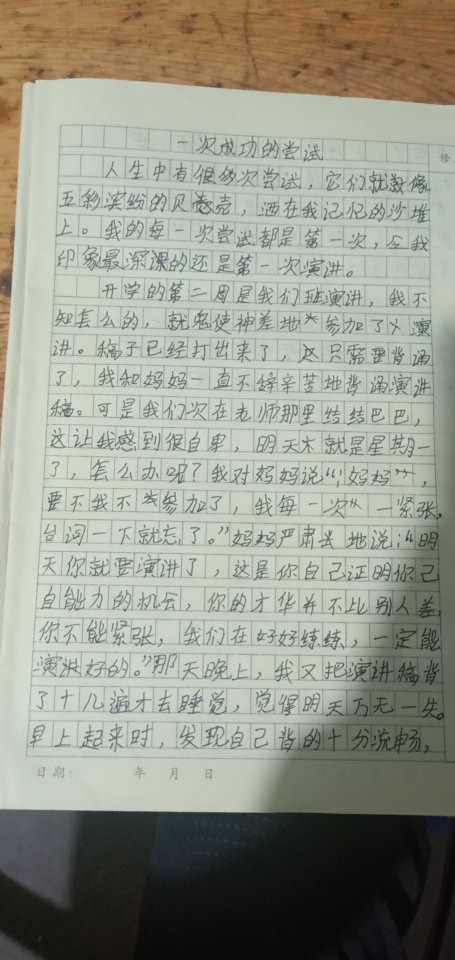 一次成功的尝试
人生中有很多次尝试，它们就像
五彩滨纷的贝壳，洒在我记忆的沙堆
上。我的每一次尝试都是第一次，令我
印象最深课的还是第一次演讲。
开学的第二周是我们班演讲，我不
知怎么的，就鬼使神差地参加了演
讲。稿子已经打出来了，只需要背诵
了，我和妈妈一直不辞辛苦地背诵演讲
稿。可是我们次在老师那里结结巴巴，
这让我感到很自卑，明天就是星期一
了，怎么办呢？我对妈妈说“：妈妈，
要不我不参加了，我每一次一紧张，
台词一下就忘了。”妈妈严肃地说：“明
天你就要演讲了，这是你自己证明你己
自能力的机会，你的才华并不比别人差，
你不能紧张，我们在好好练练，一定能
演讲好的。”那天晚上，我又把演讲稿背
了十几遍才去睡觉，觉得明天万无一失。
早上起来时，发现自己背的十分流畅，
日期： 年 月 日